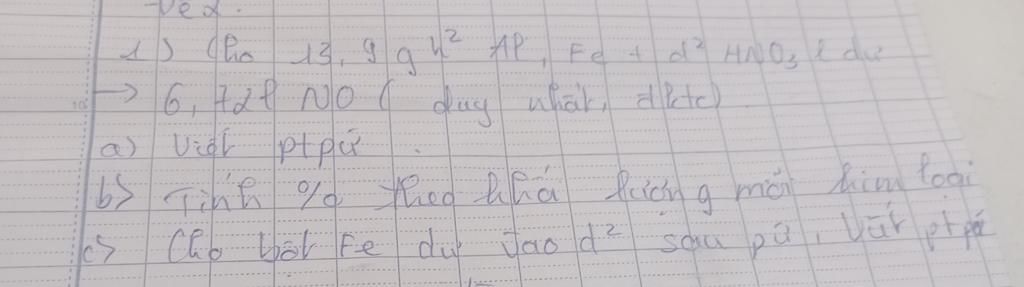 1) Cho 13,9 g h² Al, Fe + d² HNO₃ l dư
→ 6,72l NO ( duy nhất, đktc)
a) Viết ptpứ.
b) Tính % theo khối lượng mỗi kim loại
c) Cho bột Fe dư vào d² sau pứ, Viết ptpứ